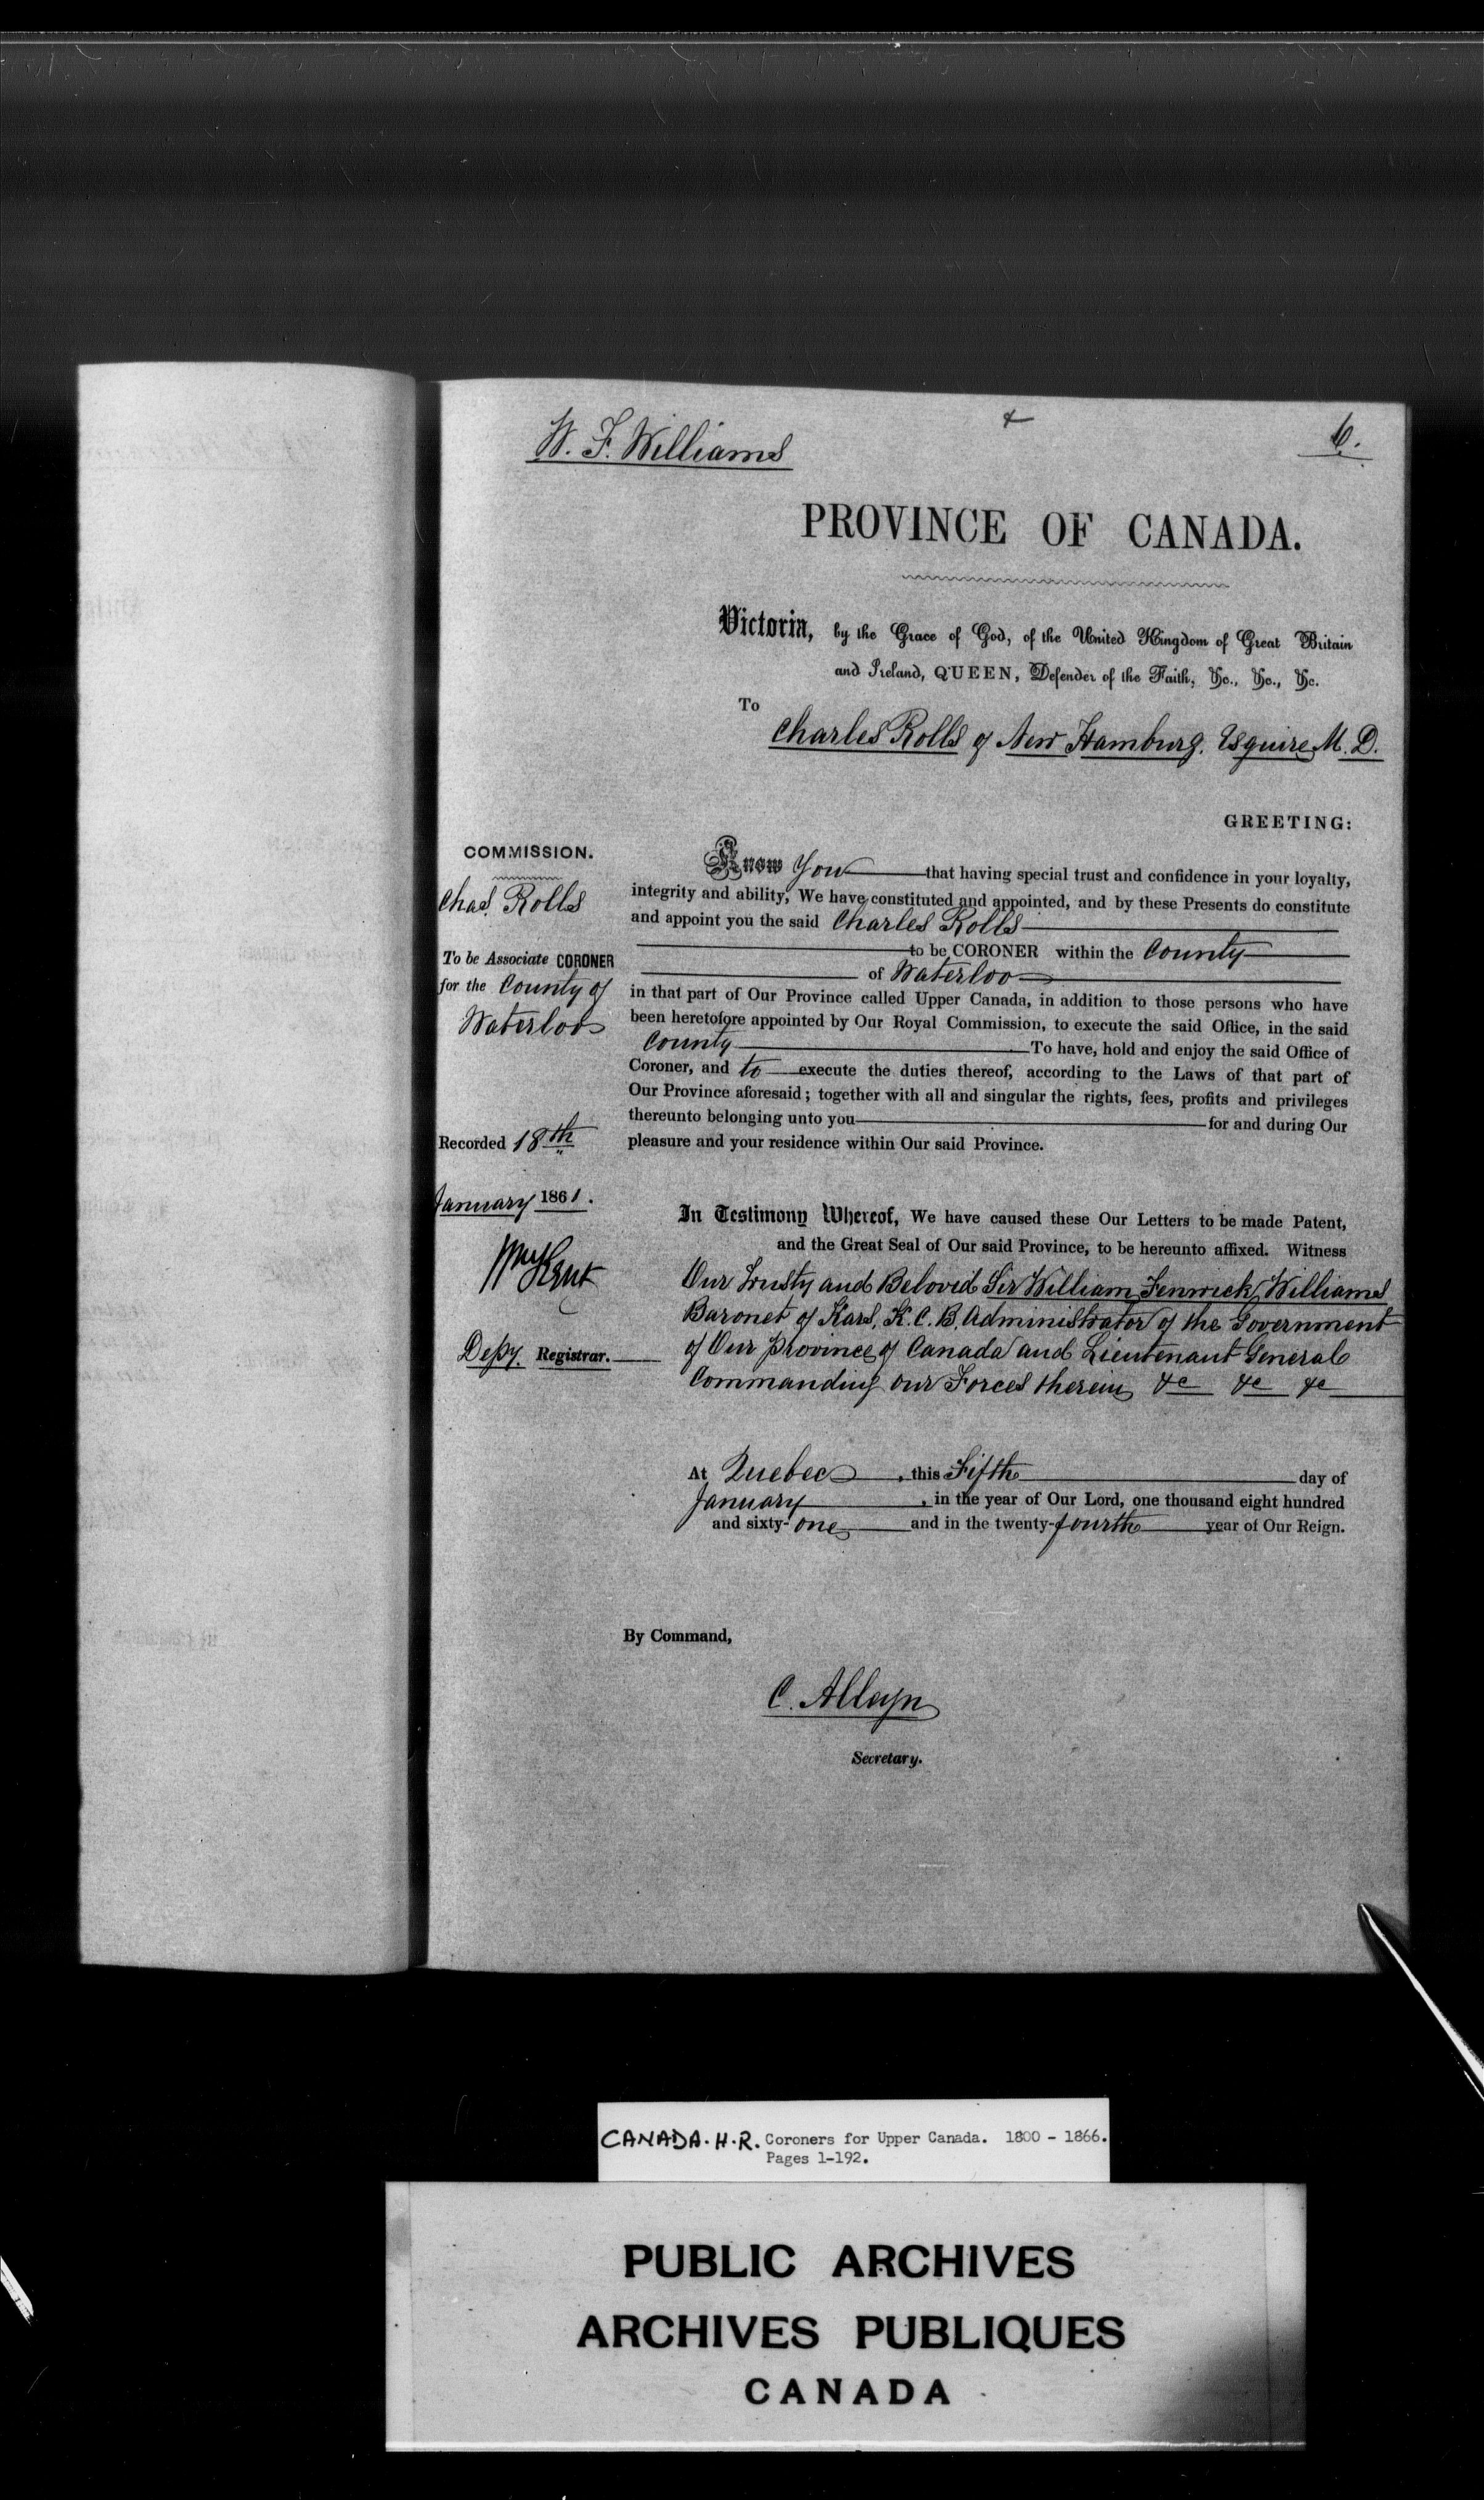 W. F. Williams
6.
PROVINCE OF CANADA.
Victoria, by the Grace of God, of the United Kingdom of Great Britain
and Ireland, QUEEN, Defender of the Faith, &c., &c., &c.
To
Charles Rolls of New Hamburg. Esquire M. D.
GREETING:
COMMISSION.
Chas. Rolls
To be Associate CORONER
for the County of
Waterloo
Recorded 18th
January 1861.
Wm Kent
Depy. Registrar.
Know You that having special trust and confidence in your loyalty,
integrity and ability, We have constituted and appointed, and by these Presents do constitute
and appoint you the said Charles Rolls
to be CORONER within the County
of Waterloo
in that part of Our Province called Upper Canada, in addition to those persons who have
been heretofore appointed by Our Royal Commission, to execute the said Office, in the said
County To have, hold and enjoy the said Office of
Coroner, and to execute the duties thereof, according to the Laws of that part of
Our Province aforesaid; together with all and singular the rights, fees, profits and privileges
thereunto belonging unto you for and during Our
pleasure and your residence within Our said Province.
In Testimony Whereof, We have caused these Our Letters to be made Patent,
and the Great Seal of Our said Province, to be hereunto affixed. Witness
Our Trusty and Beloved Sir William Fenwick Williams
Baronet of Kars, K. C. B. Administrator of the Government
of Our Province of Canada and Lieutenant General
Commanding our Forces therein &c &c &c
At Quebec, this Fifth day of
January, in the year of Our Lord, one thousand eight hundred
and sixty-one and in the twenty-fourth year of Our Reign.
By Command,
C. Alleyn
Secretary.
CANADA. H. R. Coroners for Upper Canada. 1800 - 1866.
Pages 1-192.
PUBLIC ARCHIVES
ARCHIVES PUBLIQUES
CANADA